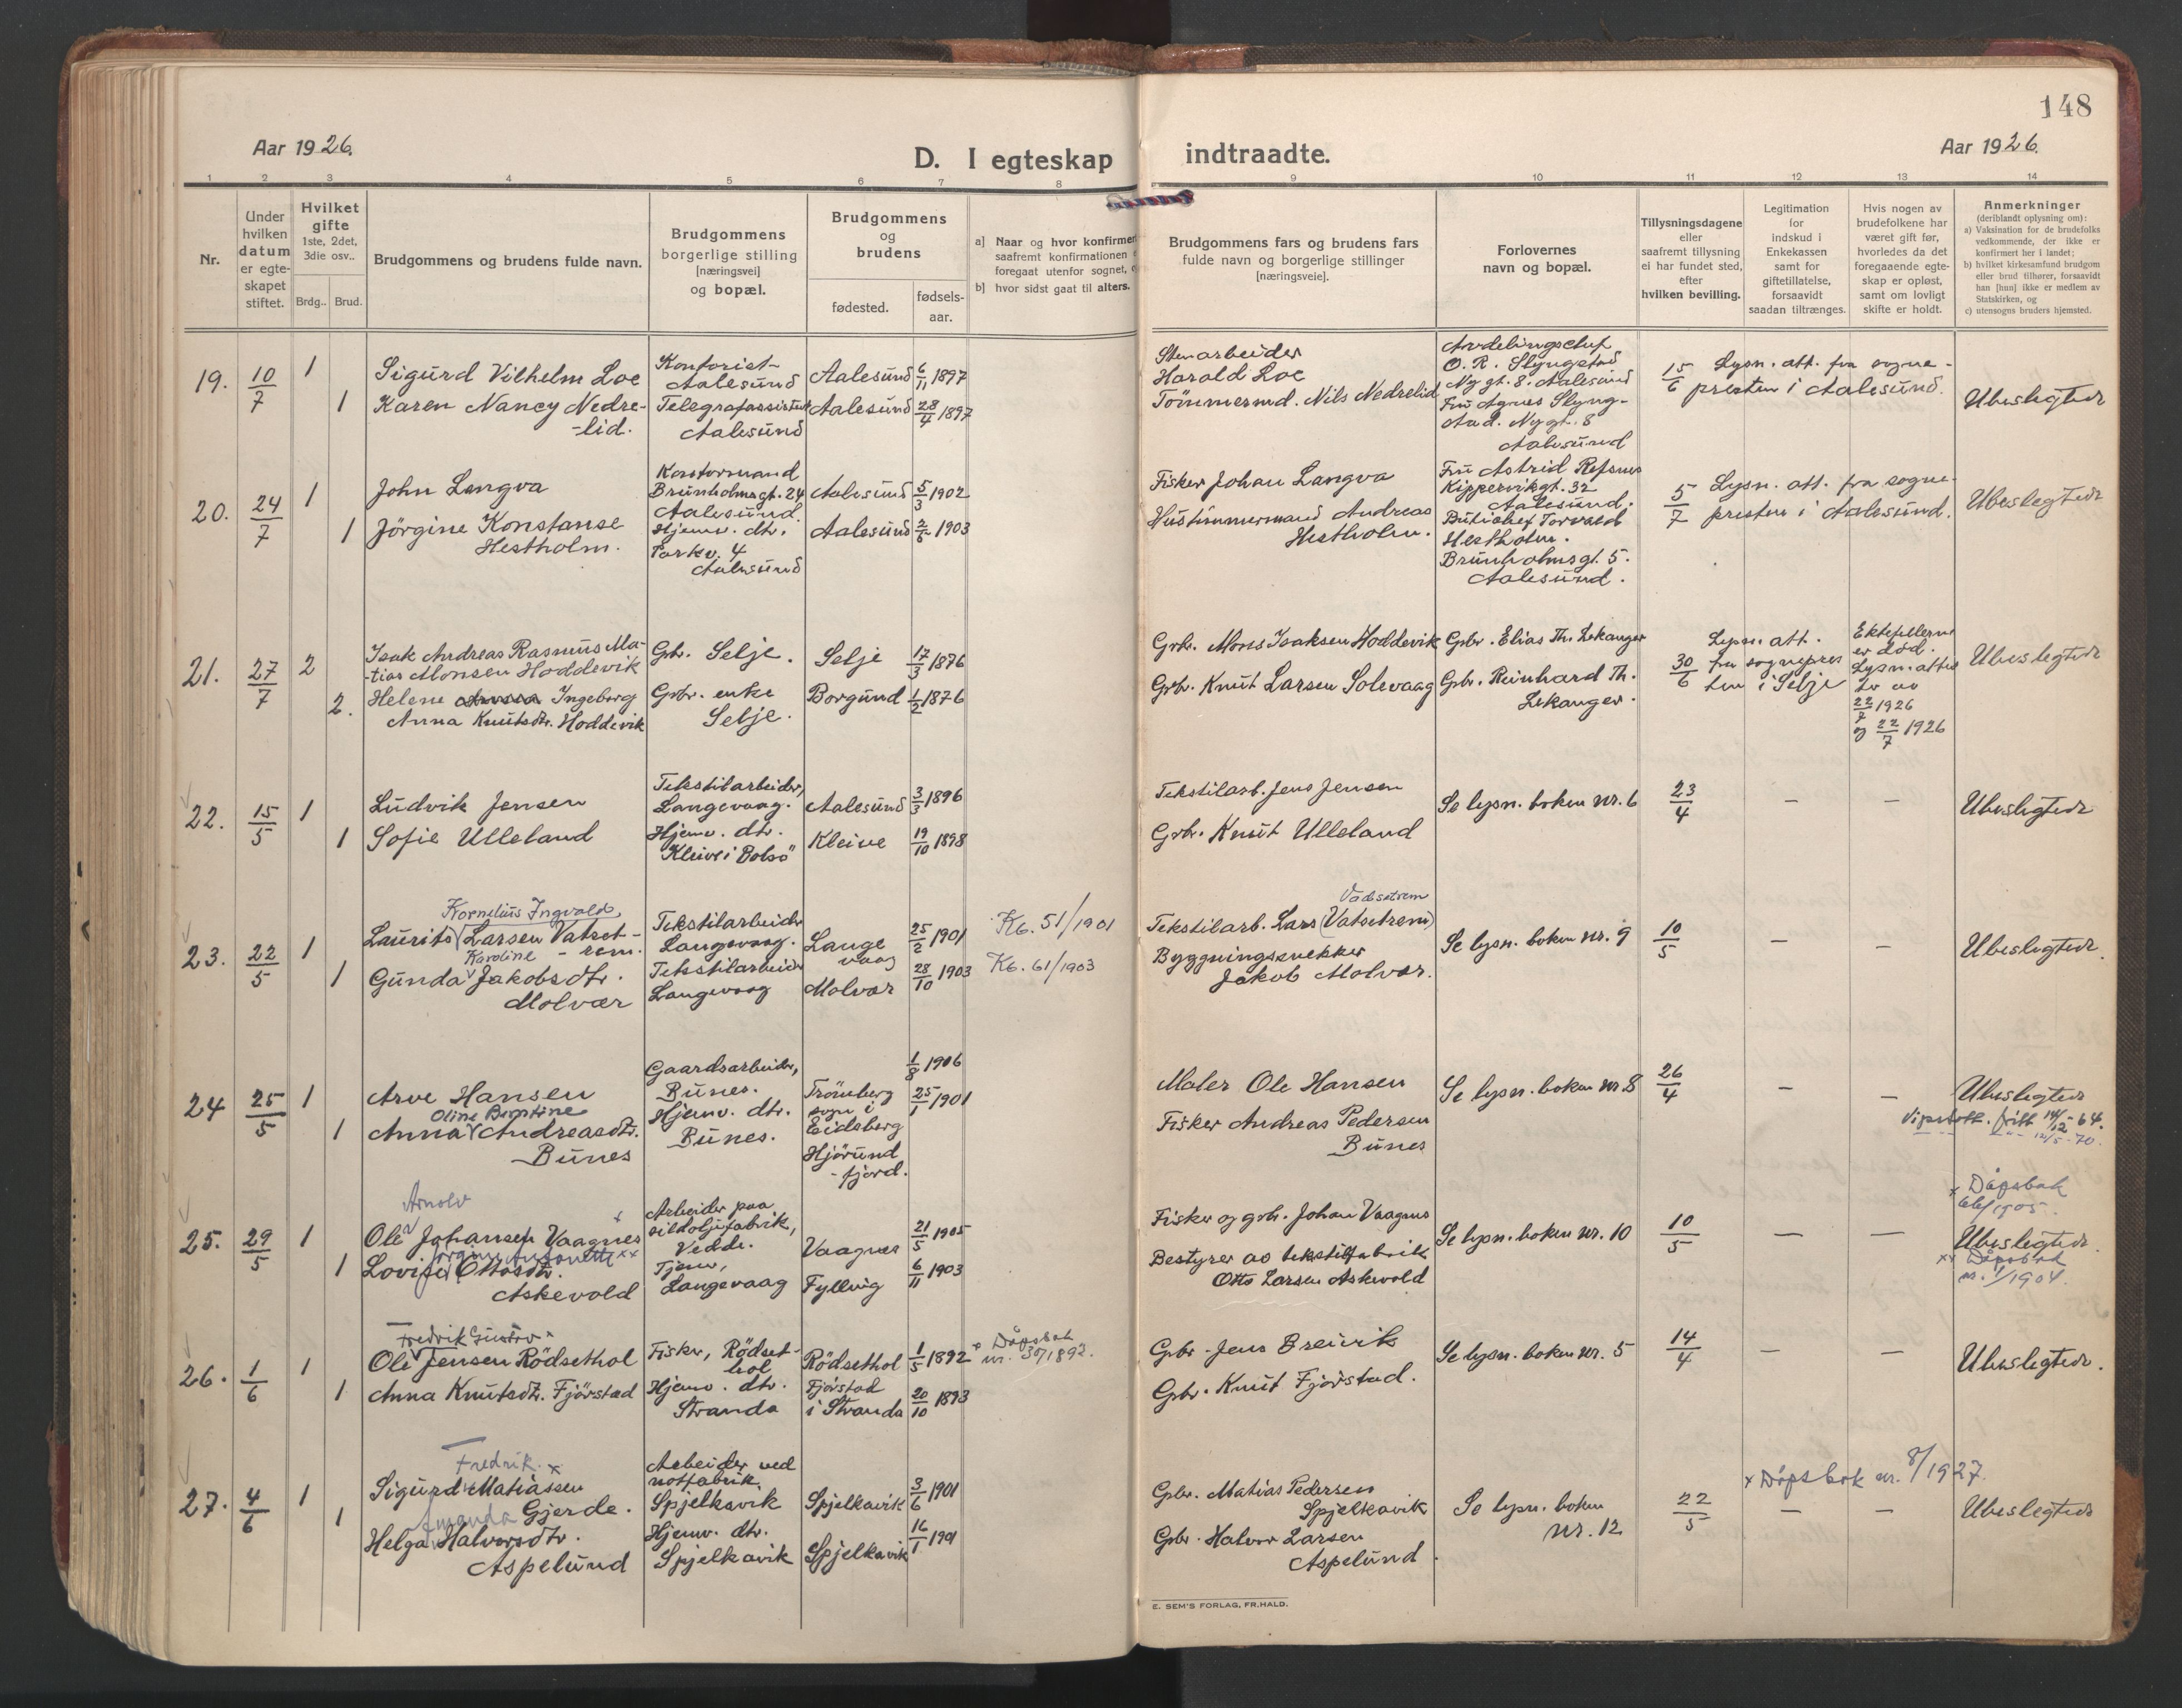 148
Aar 1926.
D. I egteskap
indtraadte.
Aar 1926.
1 2 3 4 5 6 7 8 9 10 11 12 13 14
Nr.
Under
hvilken
datum
er egte-
skapet
stiftet.
Hvilket
gifte
1ste, 2det,
3die osv..
Brdg.. Brud.
Brudgommens og brudens fulde navn.
Brudgommens
borgerlige stilling
[næringsvei]
og bopæl.
Brudgommens
og
brudens
fødested.
fødsels-
aar.
a] Naar og hvor konfirmer
saafremt konfirmationen
foregaat utenfor sognet,
b] hvor sidst gaat til alters.
Brudgommens fars og brudens fars
fulde navn og borgerlige stillinger
[næringsveie].
Forlovernes
navn og bopæl.
Tillysningsdagene
eller
saafremt tillysning
ei har fundet sted,
efter
hvilken bevilling.
Legitimation
for
indskud i
Enkekassen
samt for
giftetillatelse,
forsaavidt
saadan tiltrænges.
Hvis nogen av
brudefolkene har
været gift før,
hvorledes da det
foregaaende egte-
skap er opløst,
samt om lovligt
skifte er holdt.
Anmerkninger
(deriblandt oplysning om):
a) Vaksination for de brudefolks
vedkommende, der ikke er
konfirmert her i landet;
b) hvilket kirkesamfund brudgom
eller brud tilhører, forsaavidt
han [hun] ikke er medlem av
Statskirken, og
c) utensogns bruders hjemsted.
19. 10/7 1
1
Sigurd Vilhelm Loe
Karen Nancy Nedre-
-lid.
Kontorist
Aalesund
Telegrafassistent
Aalesund
Aalesund 6/11 1897
Aalesund 28/4 1897
Stenarbeider
Harald Loe
Tömmermd. Nils Nedrelid
Avdelingschef
O. R. Slyngstad
Nygt. 8. Aalesund
Fru Agnes Slyng-
stad. Nygt. 8
Aalesund
15/6 Lysn. att. fra sogne-
presten i Aalesund.
Ubeslegtede
20. 24/7 1
1
John Langva
Jörgine Konstanse
Hestholm.
Kontormand
Brunholmsgt. 24
Aalesund.
Hjemv. dtr.
Parkv. 4
Aalesund
Aalesund 5/3 1902
Aalesund 2/6 1903
Fisker Johan Langva
Hustömmermand Andreas
Hestholm.
Fru Astrid Refsnes
Kippervikgt. 32
Aalesund.
Butichef Torvald
Hestholm.
Brunholmsgt. 5.
Aalesund.
5/7 Lysn. att. fra sogne-
presten i Aalesund.
Ubeslegtede
21. 27/7 2
2.
Isak Andreas Rasmus Ma-
-tias Monsen Hoddevik
Helene Ingeborg
Anna Knutsdtr. Hoddevik
Gbr. Selje.
Gbr. enke
Selje.
Selje 17/3 1876
Borgund 1/2 1876
Grbr. Mons Isaksen Hoddevik
Grbr. Knut Larsen Solevaag
Gbr. Elias Th. Lekanger
Gbr. Reinhard Th.
Lekanger.
30/6 Lysn. att.
fra sognepres
ten i Selje
Ektefellerne
er död.
Lysn. attes
ter av
22/7 1926
og 22/7 1926
Ubeslegtede
22. 15/5 1
1
Ludvik Jensen
Sofie Ulleland
Tekstilarbeider,
Langevaag.
Hjemv. dtr.
Kleive i Bolsö
Aalesund 3/3 1896
Kleive 19/10 1898
Tekstilarb. Jens Jensen
Grbr. Knut Ulleland
Se lysn. boken nr. 6
23/4 – –
Ubeslegtede
23. 22/5 1
1
Kornelius Ingvald
Laurits Larsen Vatset-
- rem.
Karoline
Gunda Jakobsdtr.
Molvær
Tekstilarbeider
Langevaag.
Tekstilarbeider
Langevaag
Lange
vaag 25/2 1901
Molvær 28/10 1903
Kb. 51/1901
Kb. 61/1903
Vadsetrem
Tekstilarb. Lars (Vatsetrem)
Byggningssnekker
Jakob Molvær.
Se lysn. boken nr. 9
10/5 – –
Ubeslegtede.
24 25/5 1
1
Arve Hansen
Oline Berntine
Anna Andreasdtr.
Bunes
Gaardsarbeider,
Bunes.
Hjemv. dtr.
Bunes.
Trömberg
sogn i
Eidsberg
Hjörund
-fjord.
1/8 1906
25/1 1901
Maler Ole Hansen
Fisker Andreas Pedersen
Bunes
Se lysn. boken nr 8
26/4 – –
Ubeslegtede
14/12-64.
12/5-70.
25. 29/5 1
1
Arnolv
Ole Johansen Vaagnes x
Jörgine Antonette xx
Lovise Ottosdtr.
Askevold
Arbeider paa
sildoljefabrik,
Vedde.
Tjen.,
Langevaag
Vaagnes 21/5 1905
Fyllvig 6/11 1903
Fisker og gbr. Johan Vaagnes
Bestyrer av tekstilfabrik
Otto Larsen Askevold
Se lysn. boken nr. 10
10/5 – –
x Dåpsbok
66/1905.
Ubeslegtede.
xx Dåpsbok
nr. 1/1904.
26. 1/6 1
1
Fredrik Gustav x
Ole Jensen Rödsethol
Anna Knutsdtr. Fjörstad
Fisker, Rödset-
hol
Hjemv. dtr.
Stranda
Rödsethol 1/5 1892
Fjörstad
i Stranda 20/10 1893
x Dåpsbok
nr. 30/1892.
Gbr. Jens Breivik
Gbr. Knut Fjörstad.
Se lysn. boken nr. 5
14/4 – –
Ubeslegtede.
27. 4/6 1
1
Fredrik. x
Sigurd Matiassen
Gjerde.
Amanda
Helga Halvorsdtr.
Aspelund
Arbeider ved
notfabrik,
Spjelkavik
Hjemv. dtr.
Spjelkavik
Spjelkavik 3/6 1901
Spjelkavik 16/1 1901
Gbr. Matias Pedersen
Spjelkavik
Gbr. Halvor Larsen
Aspelund.
Se lysn. boken
nr. 12
22/5 – –
x Dåpsbok nr. 8/1927.
Ubeslegtede
E. SEM'S FORLAG, FR.HALD.